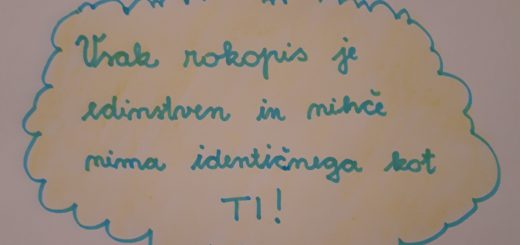 Vsak rokopis je
edinstven in nihče
nima identičnega kot
TI!